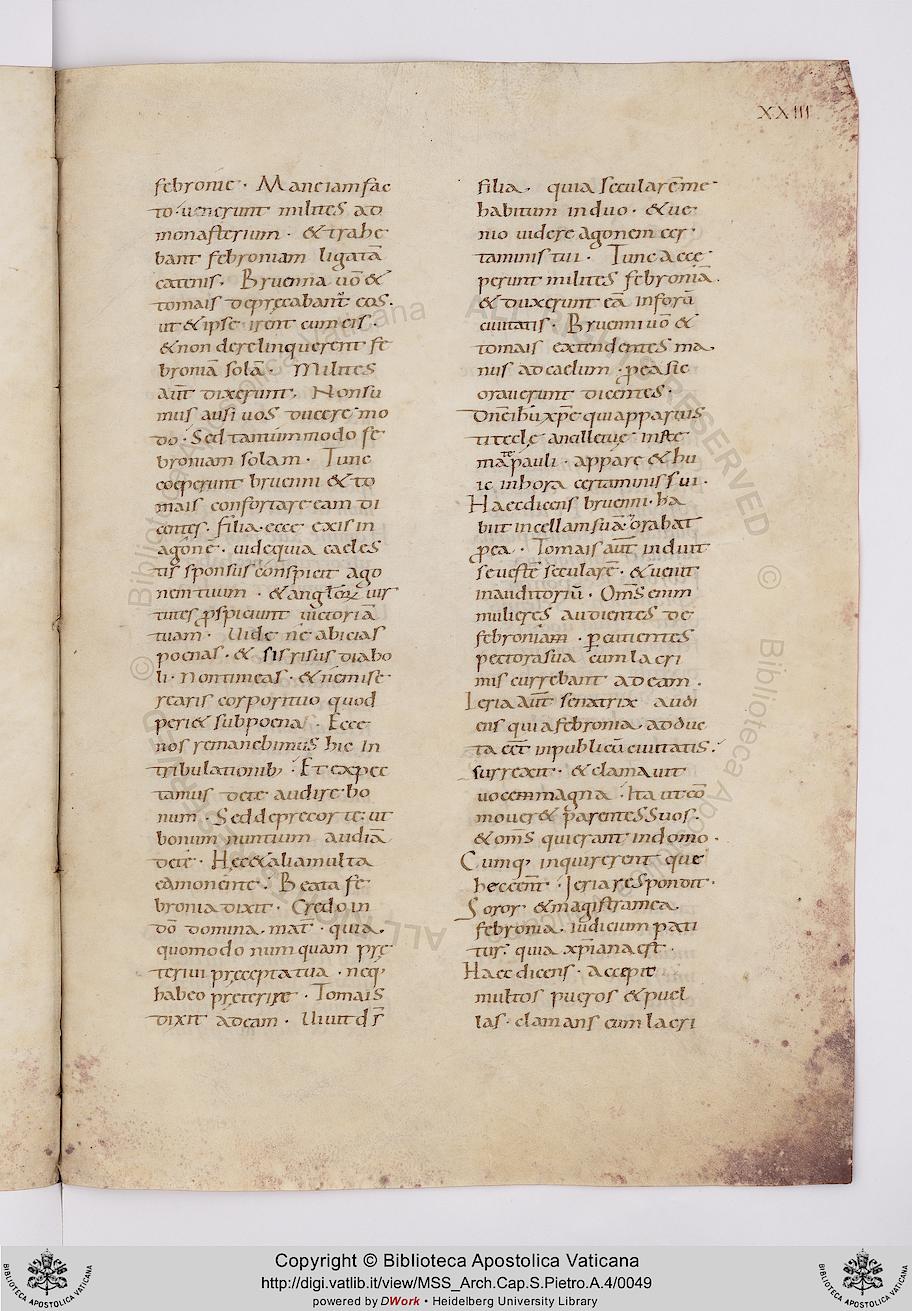 XXIII
febronie · Mane iam fac
to · uenerunt milites ad
monasterium · & trahe
bant febroniam ligatā
catenis · Bruenna uō &
tomais deprecabant̄ eos ·
ut & ipse irent cum eis ·
& non derelinquerent fe
broniā solā · Milites
aūt dixerunt · Non su
mus ausi uos ducere mo
do · Sed tantummodo fe
broniam solam · Tunc
coeperunt bruenni & to
mais confortare eam di
centes · filia · ecce exis in
agonē · uide quia caeles
tis sponsus conspicit ago
nem tuum · & angloꝝ uir
tutes ꝓspiciunt uictoriā
tuam · Uide ne abicias
poenas · & sis risus diabo
li · Non timeas · & ne mise
rearis corpori tuo quod
peri& sub poena · Ecce
nos remanebimus hic in
tribulationib; · Et expec
tamus de te audire bo
num · Sed deprecor te · ut
bonum nuntium audiā
de te · Hec & alia multa
eā monente · Beata fe
bronia dixit · Credo in
dō domina mat̄ · quia
quomodo num quam prę
teriui pręcepta tua · neq;
habeo pręterire · Tomais
dixit ad eam · Uiuit dn̄s
filia · quia secularē me
habitum induo · & ue
nio uidere agonem cer
taminis tui · Tunc acce
perunt milites febroniā ·
& duxerunt eā in forū
ciuitatis · Bruenni uō &
tomais extendentes ma
nus ad caelum · p̄ ea sic
orauerunt dicentes ·
Dn̄e ihū xp̄e qui apparuis
ti tecle ancille tuę in ste
mate pauli · appare & hu
ic in hora certaminis sui ·
Haec dicens bruenni · ha
biit in cellam suā · orabat
ꝓ ea · Tomais aūt induit
se uestē secularē · & uenit
in auditoriū · Om̄s enim
mulieres audientes de
febroniam · ꝑcutientes
pectora sua cum lacri
mis currebant ad eam ·
Ieria aūt senatrix audi
ens quia febronia · adduc
ta eēt in publicū ciuitatis ·
surrexit · & clamauit
uocem magna · Ita ut cō
mouer& parentes suos ·
& om̄s qui erant in domo ·
Cumq; inquirerent que
hec eēnt · Ieria respondit ·
Soror & magistra mea
febronia · iudicium pati
tur · quia xp̄iana est ·
Haec dicens · accepit
multos pueros & puel
las · clamans cum lacri
© Biblioteca Apostolica Vaticana
ALL RIGHTS RESERVED
© Biblioteca Apostolica Vaticana
ALL RIGHTS RESERVED
BIBLIOTECA APOSTOLICA VATICANA
Copyright © Biblioteca Apostolica Vaticana
http://digi.vatlib.it/view/MSS_Arch.Cap.S.Pietro.A.4/0049
powered by DWork • Heidelberg University Library
BIBLIOTECA APOSTOLICA VATICANA